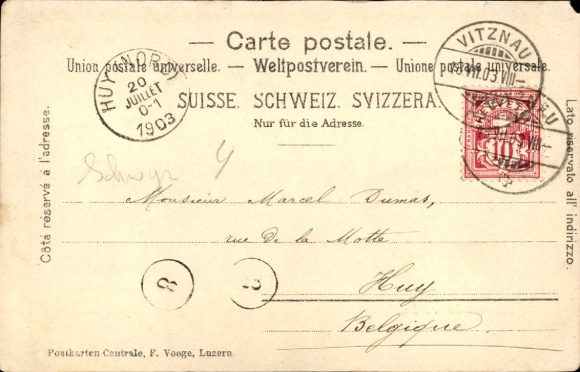 — Carte postale. —
Union postale universelle. — Weltpostverein. — Unione postale universale.
SUISSE. SCHWEIZ. SVIZZERA.
Nur für die Adresse.
HUY (NORD)
20
JUILLET
0-1
1903
VITZNAU
VII.03.VIII
HELVETIA
10
Côté réservé à l'adresse.
Lato riservato all' indirizzo.
Schwyz
Monsieur Marcel Dumas,
rue de la Motte
Huy
Belgique
8
Postkarten-Centrale, F. Voege, Luzern.